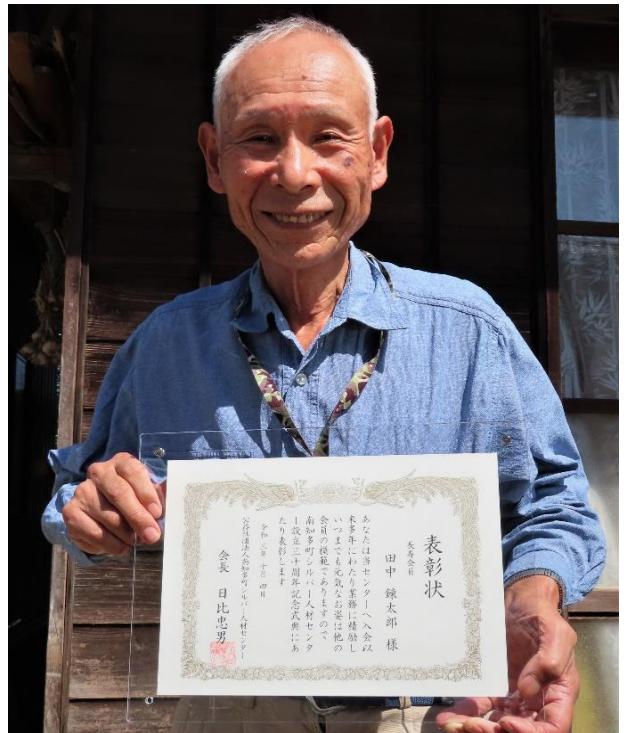 表彰状
長寿会員
田中 錬太郎 様
あなたは当センターへ入会以
来多年にわたり業務に精励し
いつまでも元気なお姿は他の
会員の模範でありますので
南知多町シルバー人材センタ
ー設立三十周年記念式典にあ
たり表彰します
令和 年 十月 四日
公益社団法人南知多町シルバー人材センター
会長 日比忠男